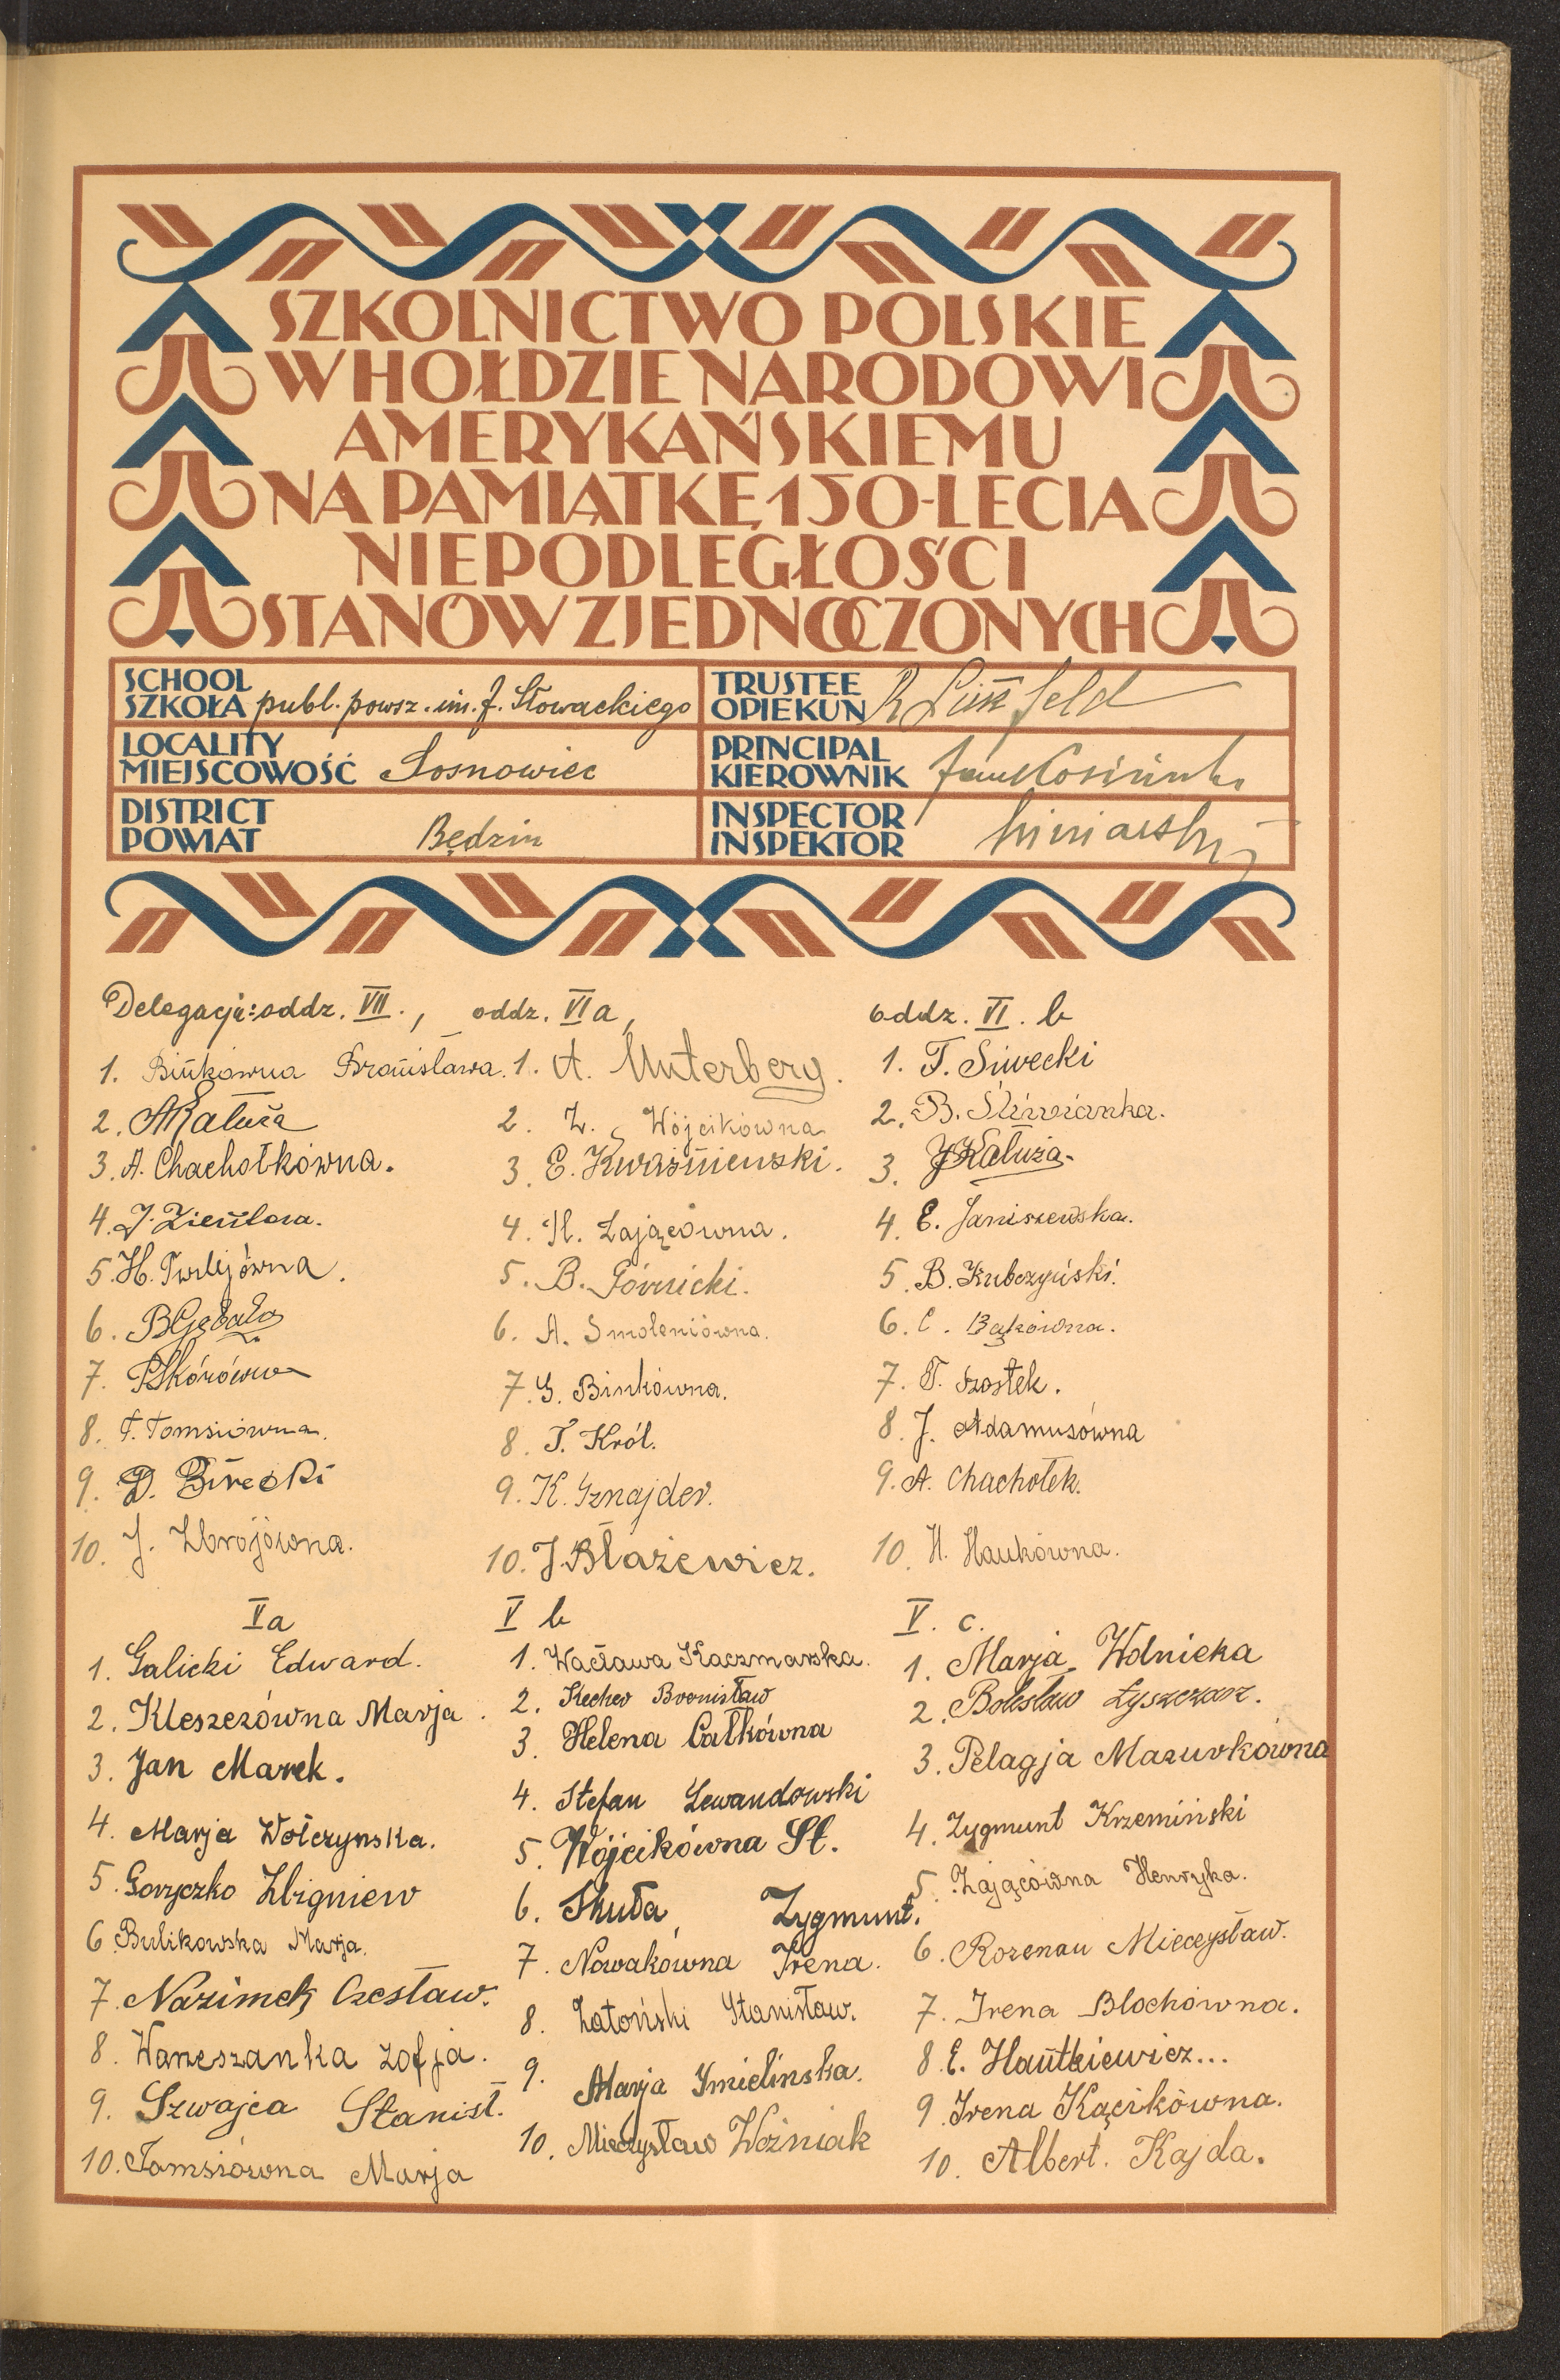 SZKOLNICTWO POLSKIE
W HOŁDZIE NARODOWI
AMERYKAŃSKIEMU
NA PAMIĄTKĘ 150-LECIA
NIEPODLEGŁOŚCI
STANÓW ZJEDNOCZONYCH
SCHOOL
SZKOŁA publ. powsz. im. J. Słowackiego
TRUSTEE
OPIEKUN
LOCALITY
MIEJSCOWOŚĆ Sosnowiec
PRINCIPAL
KIEROWNIK
DISTRICT
POWIAT Będzin
INSPECTOR
INSPEKTOR
Delegacja: oddz. VII.,
1. Bińkówna Bronisława.
2. A Kałuża
3. A. Chachołkówna.
4. J.
5. H.
6. B Gębała
7. Skórówna
8. F. Tomsiówna.
9. D.
10. J. Zbrojówna.
oddz. VI a,
1. A. Unterberg.
2. Z. Wójcikówna
3. E. Kwaśniewski.
4. H. Zającówna.
5. B. Górnicki.
6. A. Smoleniówna.
7. G. Binkówna.
8. T. Król.
9. K. Sznajder.
10. J. Błażewicz.
oddz. VI. b
1. T. Siwecki
2. B. Śliwianka.
3. J Kałuża.
4. E. Janiszewska.
5. B. Kubczyński.
6. C. Bąkówna.
7. T. Szostek.
8. J. Adamusówna
9. A. Chachołek.
10. H. Haukówna.
V a
1. Galicki Edward.
2. Kleszczówna Marja.
3. Jan Marek.
4. Marja Wołczynska.
5. Goryczko Zbigniew
6. Bulikowska Marja.
7. Nazimek Czesław.
8. Waneszanka Zofja.
9. Szwajca Stanisł.
10. Tomsiówna Marja
V b
1. Wacława Kaczmarska.
2. Bronisław
3. Helena Całkówna
4. Stefan Lewandowski
5. Wójcikówna St.
6. Skuła Zygmunt.
7. Nowakówna Irena.
8. Zatoński Stanisław.
9. Marja Imielinska.
10. Mieczysław Woźniak
V. c.
1. Marja Wolnicka
2. Bolesław Łyszczarz.
3. Pelagja Mazurkówna
4. Zygmunt Krzemiński
5. Zającówna Henryka.
6. Rozenau Mieczysław.
7. Irena Blochówna.
8. E. Hautkiewicz...
9. Irena Kącikówna.
10. Albert. Kajda.